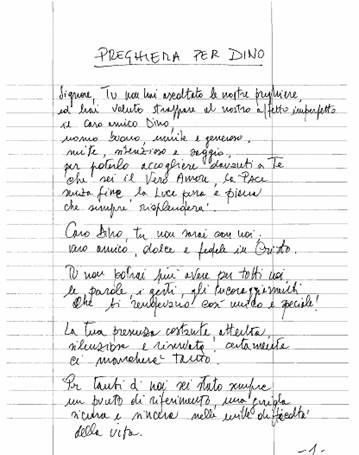 PREGHIERA PER DINO
Signore, Tu non hai ascoltato le nostre preghiere,
ed hai voluto strappare al nostro affetto imperfetto
il caro amico Dino,
uomo buono, umile e generoso,
mite, silenzioso e saggio,
per poterlo accogliere davanti a Te
che sei il Vero Amore, la Pace
senza fine, la Luce pura e piena
che sempre risplenderà.
Caro Dino, tu non sarai con noi,
caro amico, dolce e fedele in Cristo.
Tu non potrai più avere per tutti noi
le parole, i gesti, gli incoraggiamenti
che ti rendevano così unico e speciale!
La tua presenza costante attenta,
silenziosa e riservata! certamente
ci mancherà tanto.
Per tanti di noi sei stato sempre
un punto di riferimento, una guida
sicura e sincera nelle mille difficoltà
della vita.
-1-